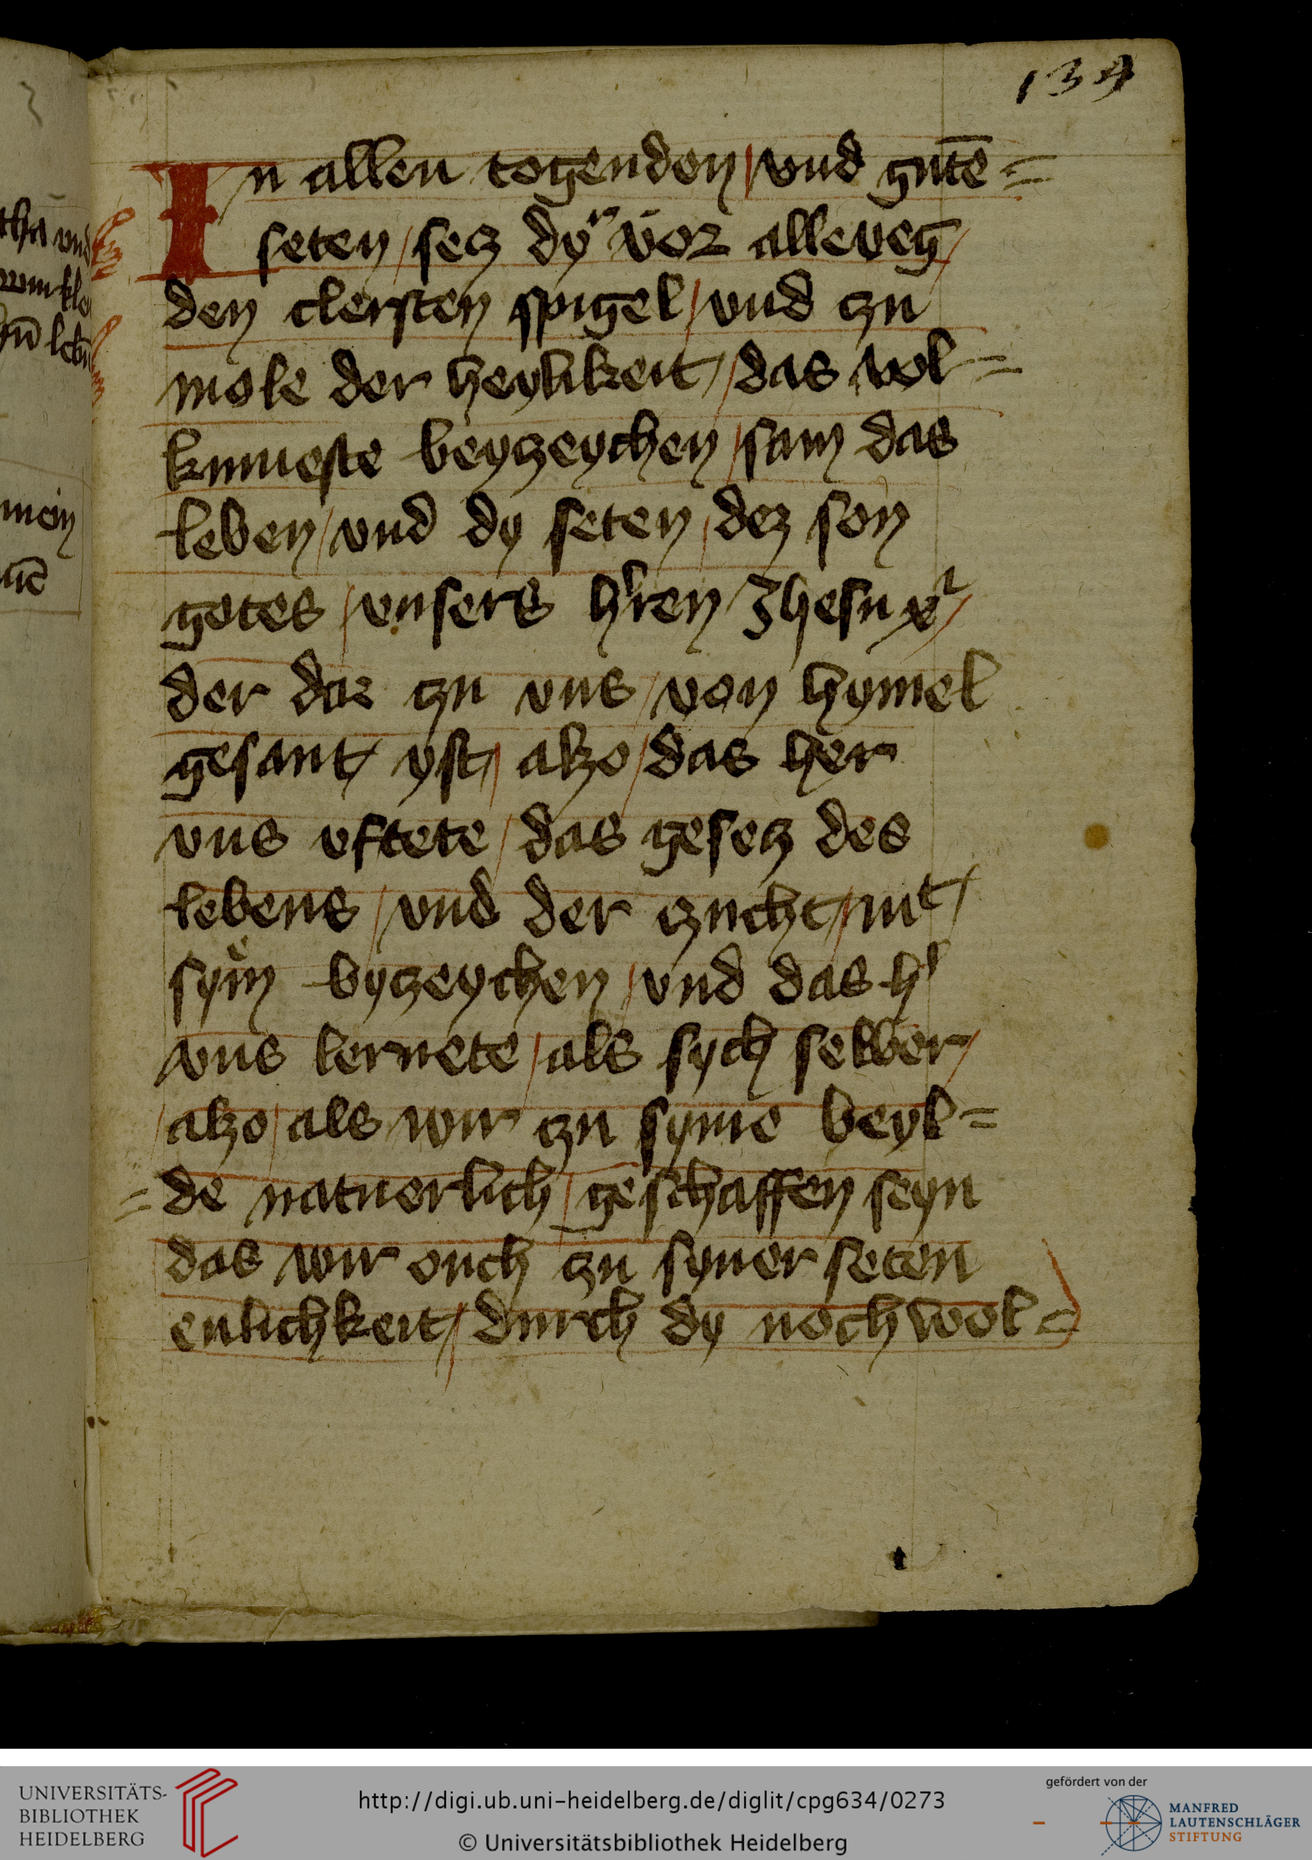 134
In allen togenden / vnd gutē =
seten / secz dyr vor alleweg /
den clersten spigel / vnd czu
mole der heylikeit / das vol =
kumeste beyzeychen / sam das
leben / vnd dy seten / dez son
gotes / vnsers hren Jhesu xr /
der dar zu vns / von hymel
gesant / yst / alzo / das her
vns oftete / das gesecz des
lebens / vnd der czucht / mit /
sym byzeychen / vnd das h'
vns lernete / als sych selber /
alzo / als wir zu syme beyl =
= de natuerlich / geschaffen seyn
das wir ouch zu syner seten
enlichkeit / durch dy nochwol =
UNIVERSITÄTS-
BIBLIOTHEK
HEIDELBERG
http://digi.ub.uni-heidelberg.de/diglit/cpg634/0273
© Universitätsbibliothek Heidelberg
gefördert von der
MANFRED
LAUTENSCHLÄGER
STIFTUNG